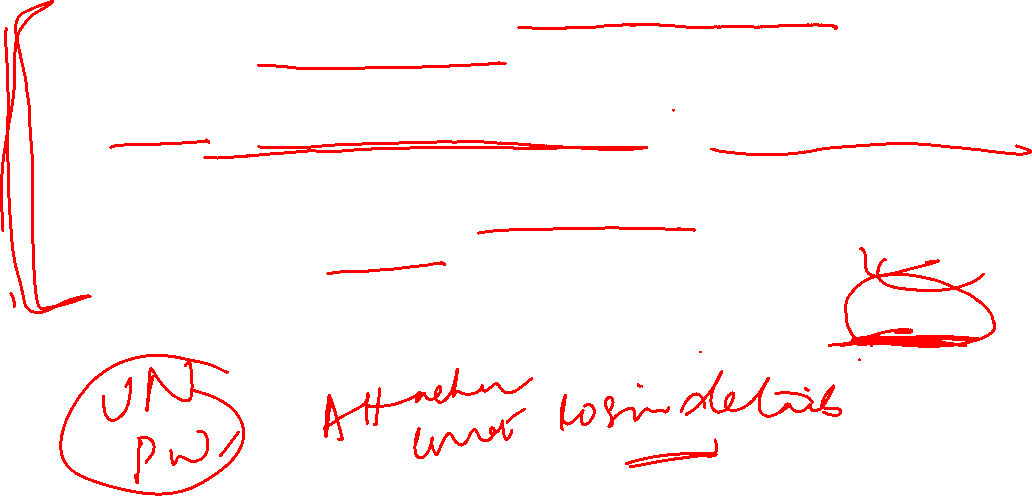 UN
PW
Attacker
want login details